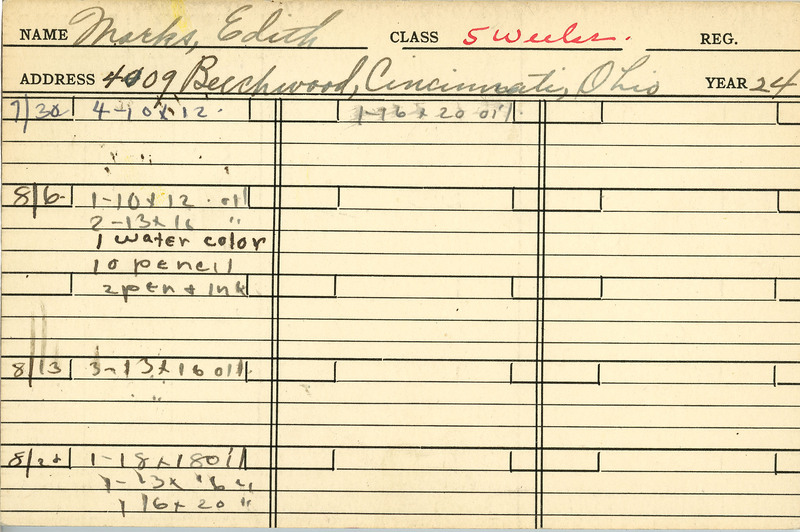 NAME Marks, Edith CLASS 5 Weeks. REG.
ADDRESS 4009 Beechwood, Cincinnati, Ohio YEAR 24
7/30 4-10x12. 1-16x20 oil.
" "
8/6 1-10x12 oil
2-13x16 "
1 water color
10 pencil
2 pen + ink
8/13 3-13x16 oil
"
8/20 1-18x18 oil
1-13x16 "
1 16x20 "